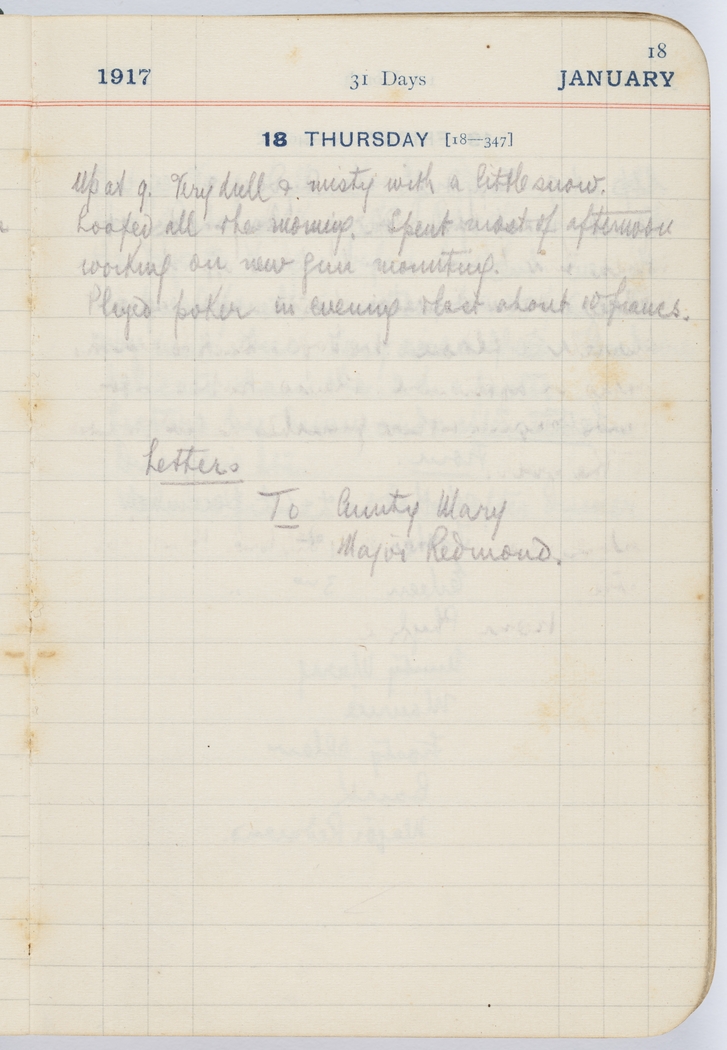 18
1917 31 Days JANUARY
18 THURSDAY [18—347]
Up at 9. Very dull & misty with a little snow.
Loafed all the morning. Spent most of afternoon
working on new gun mounting.
Played poker in evening & lost about 10 francs.
Letters
To Aunty Mary
Major Redmond.